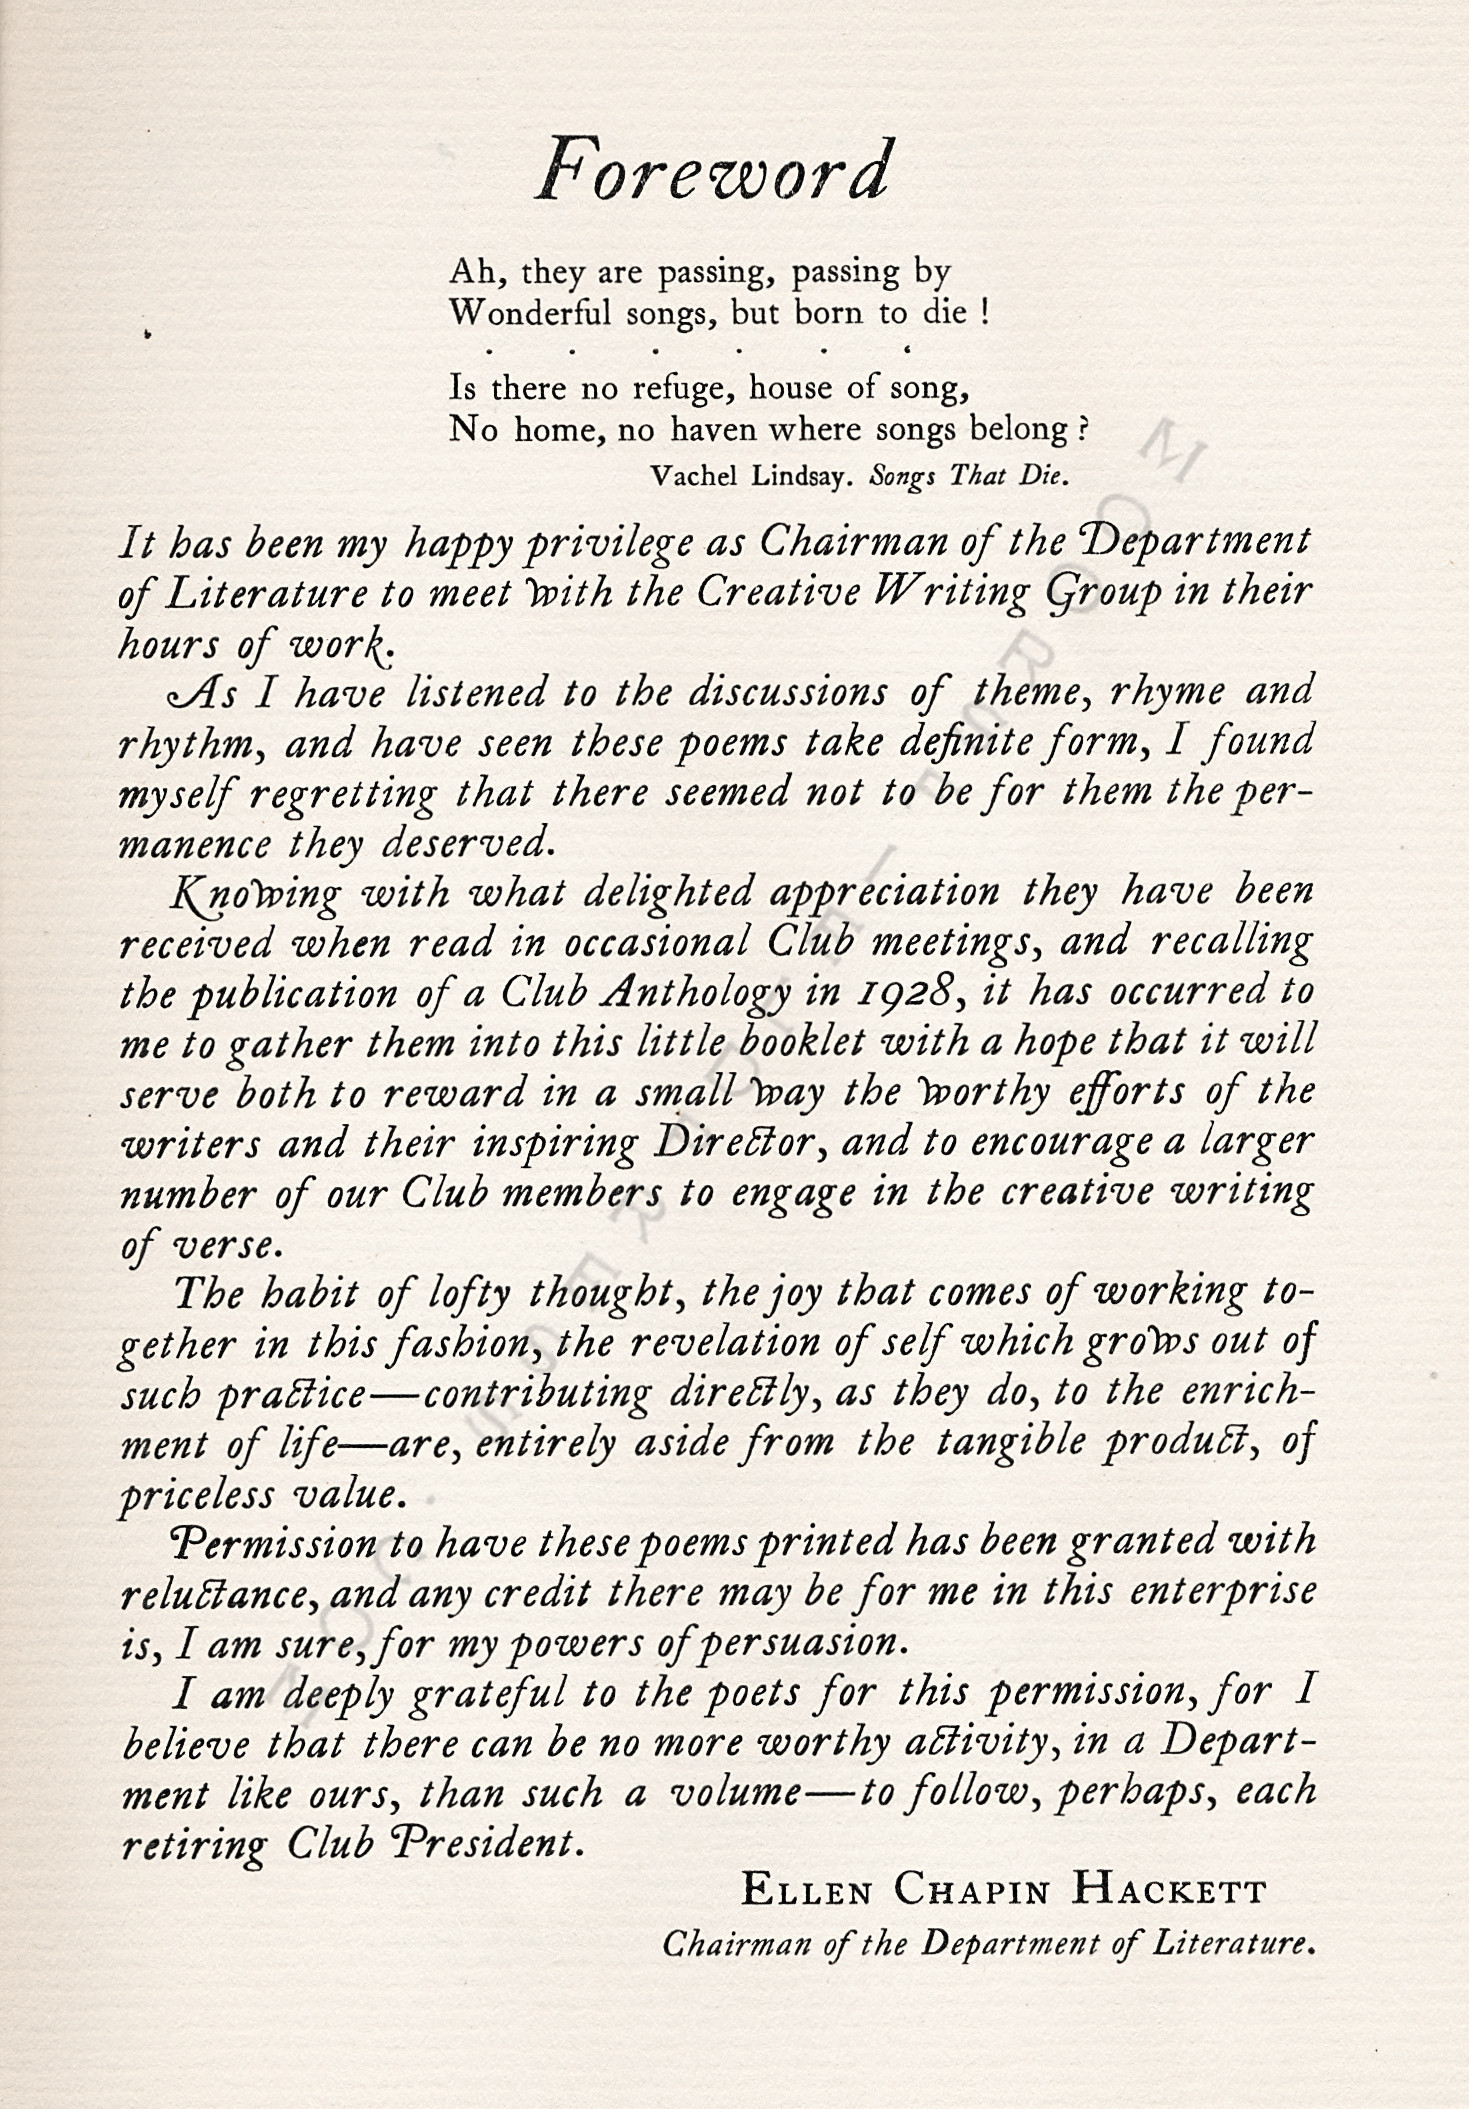 Foreword
Ah, they are passing, passing by
Wonderful songs, but born to die !
. . . . . .
Is there no refuge, house of song,
No home, no haven where songs belong ?
Vachel Lindsay. Songs That Die.
It has been my happy privilege as Chairman of the Department
of Literature to meet with the Creative Writing Group in their
hours of work.
As I have listened to the discussions of theme, rhyme and
rhythm, and have seen these poems take definite form, I found
myself regretting that there seemed not to be for them the per-
manence they deserved.
Knowing with what delighted appreciation they have been
received when read in occasional Club meetings, and recalling
the publication of a Club Anthology in 1928, it has occurred to
me to gather them into this little booklet with a hope that it will
serve both to reward in a small way the worthy efforts of the
writers and their inspiring Director, and to encourage a larger
number of our Club members to engage in the creative writing
of verse.
The habit of lofty thought, the joy that comes of working to-
gether in this fashion, the revelation of self which grows out of
such practice—contributing directly, as they do, to the enrich-
ment of life—are, entirely aside from the tangible product, of
priceless value.
Permission to have these poems printed has been granted with
reluctance, and any credit there may be for me in this enterprise
is, I am sure, for my powers of persuasion.
I am deeply grateful to the poets for this permission, for I
believe that there can be no more worthy activity, in a Depart-
ment like ours, than such a volume—to follow, perhaps, each
retiring Club President.
ELLEN CHAPIN HACKETT
Chairman of the Department of Literature.